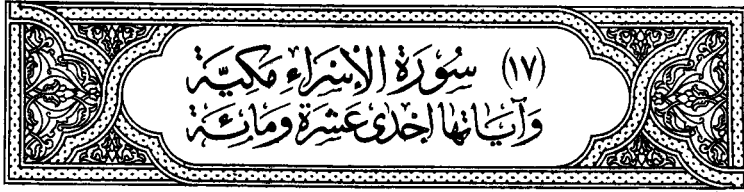 (١٧) سُورَةُ الإِسْرَاءِ مَكِيَّة
وَآيَاتهَا اِحْدَى عَشْرَة وَمَائِة